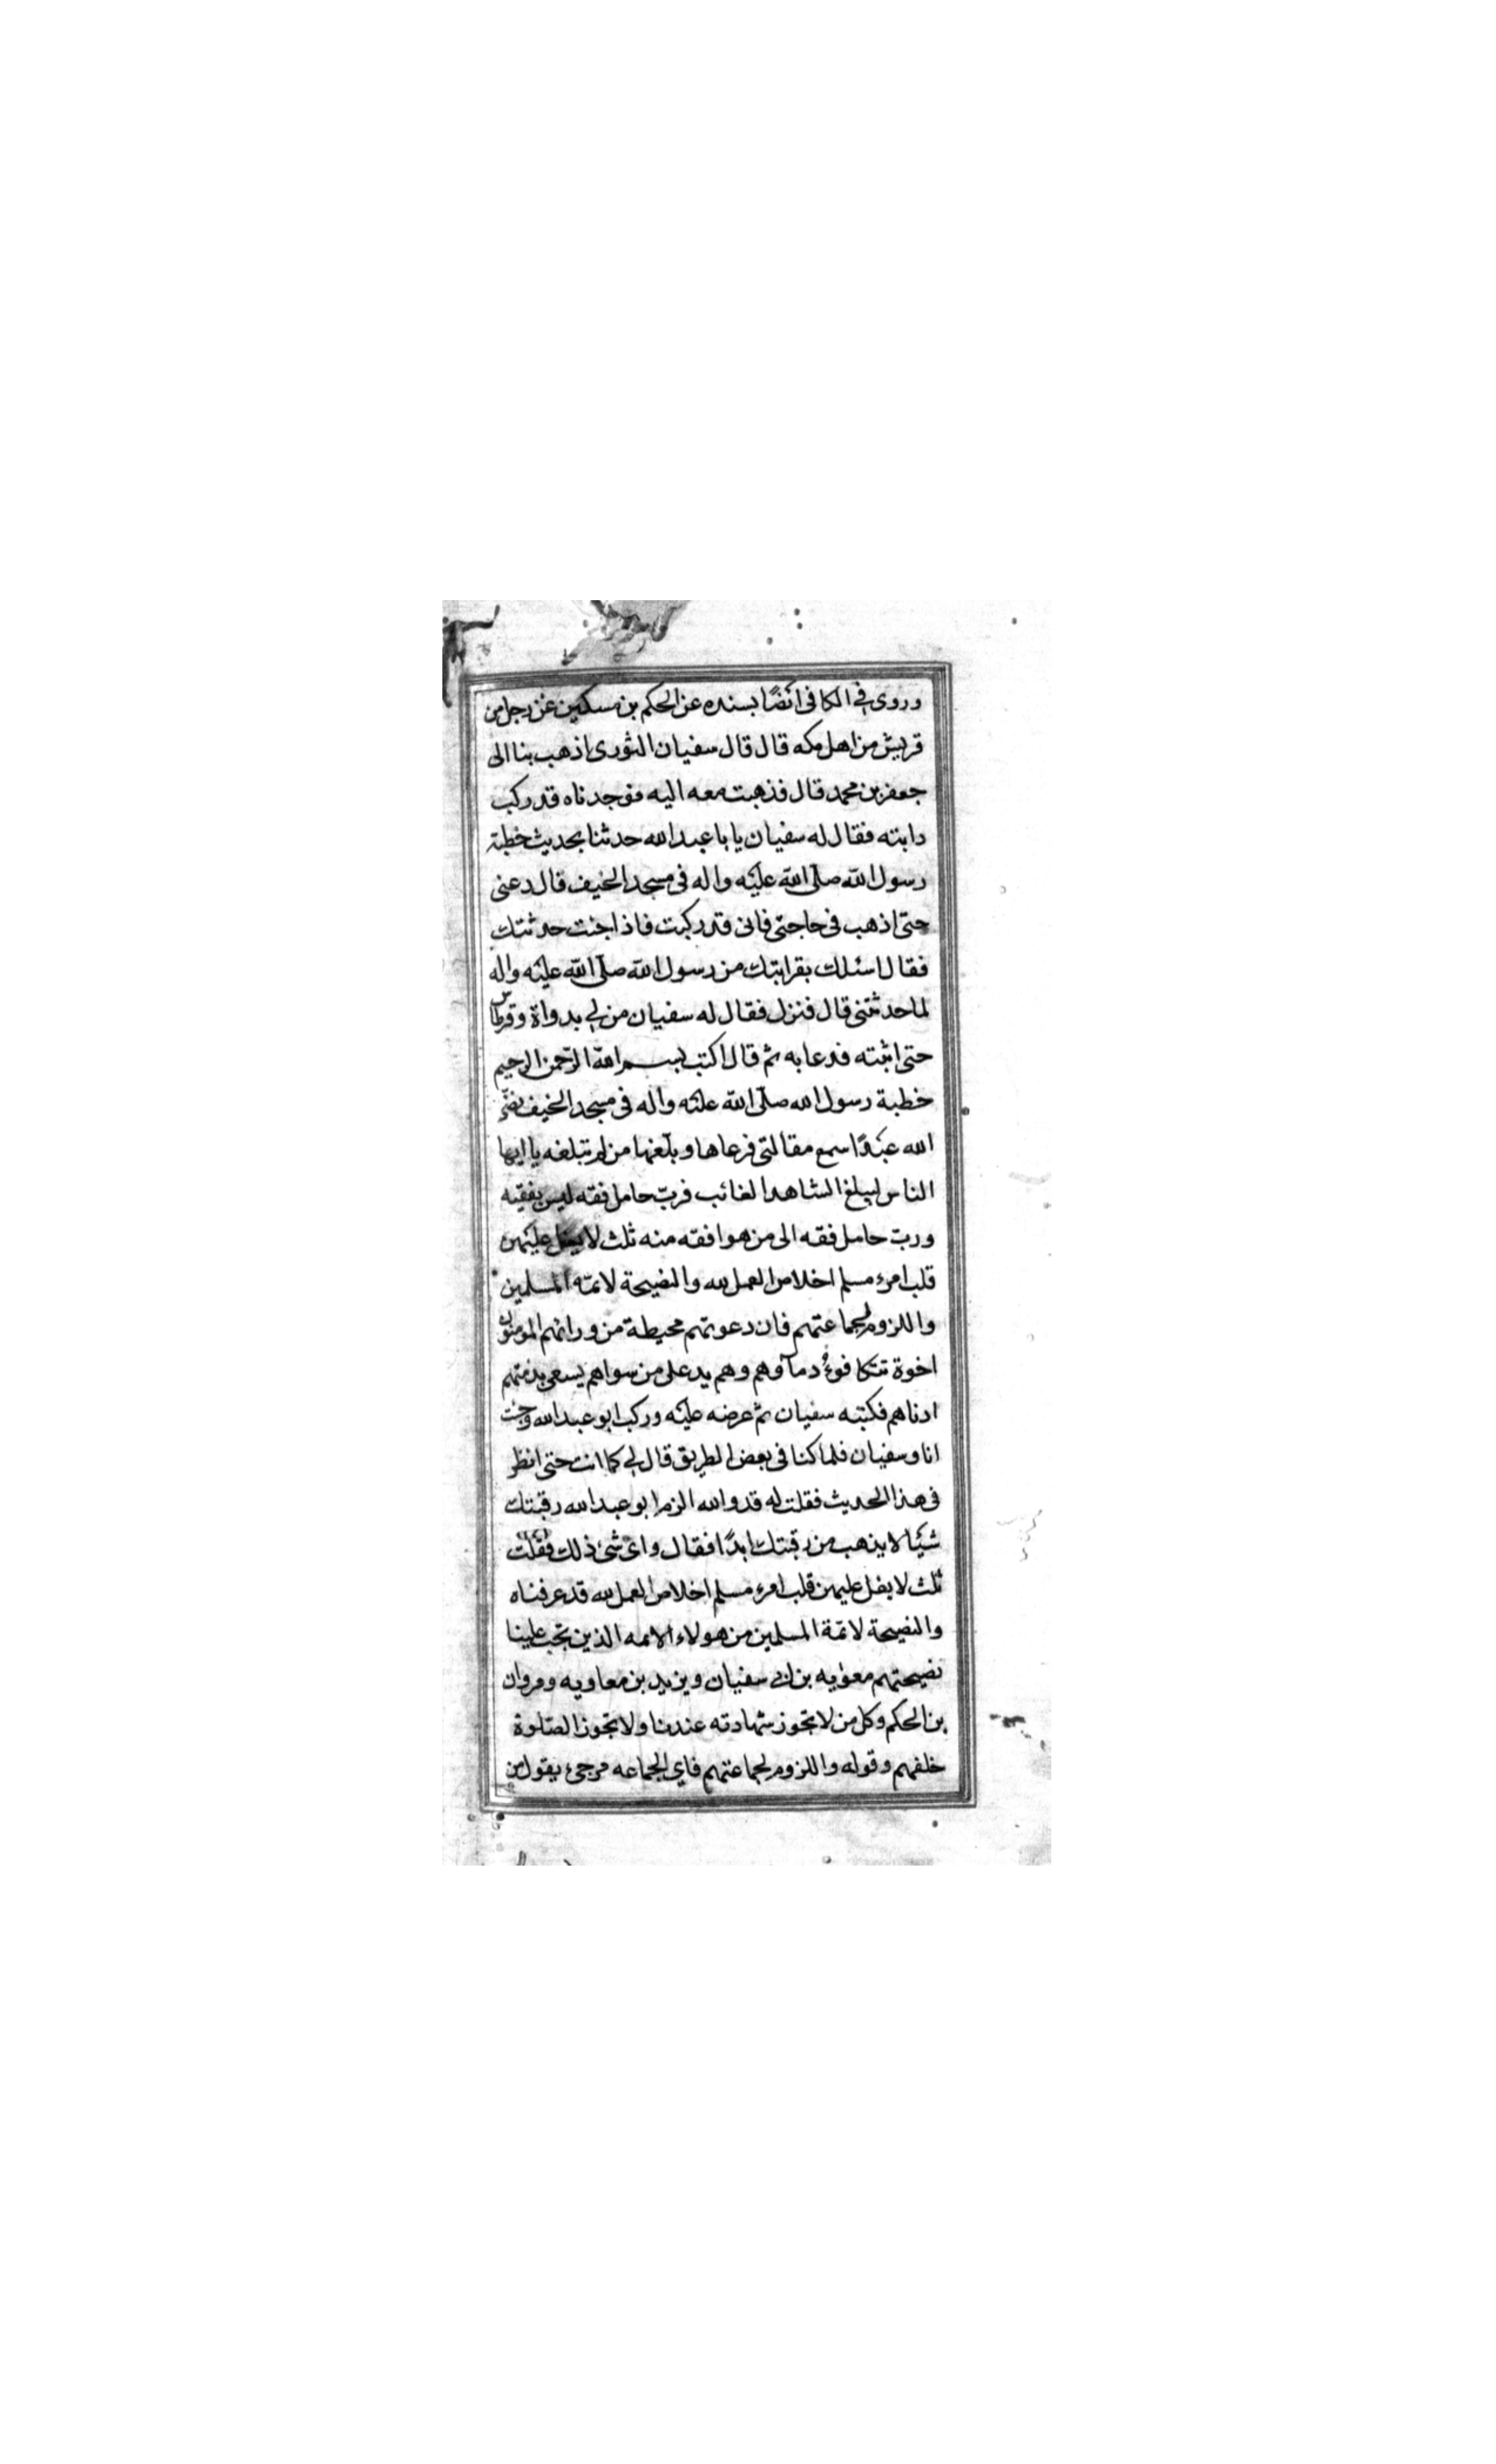 وروى في الكافي ايضًا بسنده عن الحكم بن مسكين عن رجل من
قريش من اهل مكه قال قال سفيان الثورى اذهب بنا الى
جعفر بن محمد قال فذهبت معه اليه فوجدناه قد ركب
دابته فقال له سفيان يا باعبد الله حدثنا بحديث خطبة
رسول الله صلّى الله عليه واله فى مسجد الخيف قال دعنى
حتى اذهب فى حاجتى فانى قد ركبت فاذا جئت حدثتك
فقال اسئلك بقرابتك من رسول الله صلّى الله عليه واله
لما حدثتنى قال فنزل فقال له سفيان من لي بدواة وقرطاس
حتى اثبته فدعا به ثم قال اكتب بسم الله الرّحمن الرحيم
خطبة رسول الله صلّى الله عليه واله فى مسجد الخيف نضّر
الله عبدًا سمع مقالتى فوعاها وبلّغها من لم تبلغه يا ايها
الناس ليبلغ الشاهد الغائب فربّ حامل فقه ليس بفقيه
وربّ حامل فقه الى من هو افقه منه ثلث لا يغل عليهن
قلب امرء مسلم اخلاص العمل لله والنصيحة لائمّة المسلمين
واللزوم لجماعتهم فان دعوتهم محيطة من ورائهم المومنون
اخوة تتكافوء دماؤهم وهم يد على من سواهم يسعى بذمتهم
ادناهم فكتبه سفيان ثم عرضه عليه وركب ابو عبد الله وجئت
انا وسفيان فلما كنا فى بعض الطريق قال لي كما انت حتى انظر
فى هذا الحديث فقلت له قد والله الزم ابو عبد الله رقبتك
شيئا لا يذهب من رقبتك ابدًا فقال واى شئ ذلك فقلت
ثلث لا يغل عليهن قلب امرء مسلم اخلاص العمل لله قد عرفناه
والنصيحة لائمّة المسلمين من هولاء الائمه الذين تجب علينا
نصيحتهم معويه بن ابي سفيان ويزيد بن معاويه ومروان
بن الحكم وكل من لا تجوز شهادته عندنا ولا تجوز الصّلوة
خلفهم وقوله واللزوم لجماعتهم فاي الجماعه مرجئ يقول من